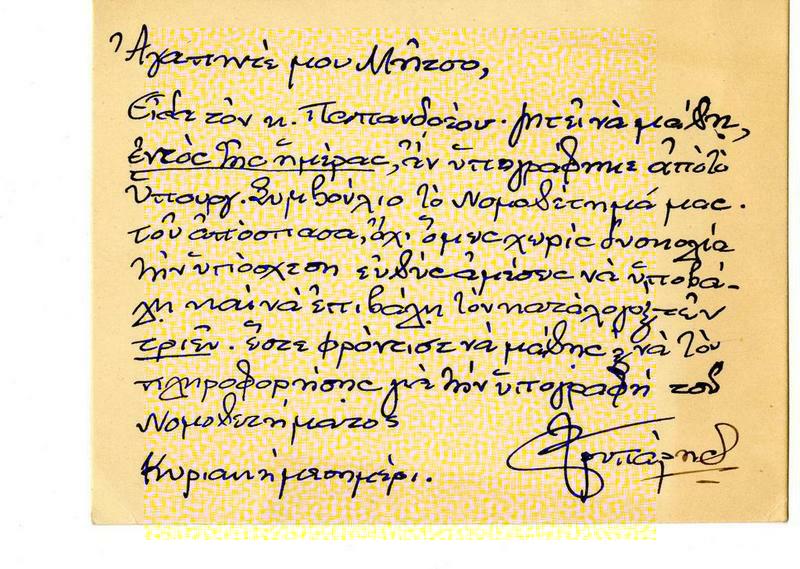 Ἀγαπητέ μου Μῆτσο,
Εἶδα τὸν κ. Παπανδρέου. ζητεῖ νὰ μάθῃ,
ἐντὸς τῆς ἡμέρας, ἂν ὑπεγράφηκε ἀπὸ τὸ
Ὑπουργ. Συμβούλιο τὸ Νομοθέτημά μας.
τοῦ ἀπόσπασα, ὄχι ὅμως χωρὶς δυσκολία
τὴν ὑπόσχεση εὐθὺς ἀμέσως νὰ ὑποβά-
λῃ καὶ νὰ ἐπιβάλῃ τὸν κατάλογο τῶν
τριῶν. ὥστε φρόντισε νὰ μάθῃς & νὰ τὸν
πληροφορήσῃς γιὰ τὴν ὑπογραφὴ τοῦ
Νομοθετήματος
Γρυπάρης
Κυριακὴ μεσημέρι.